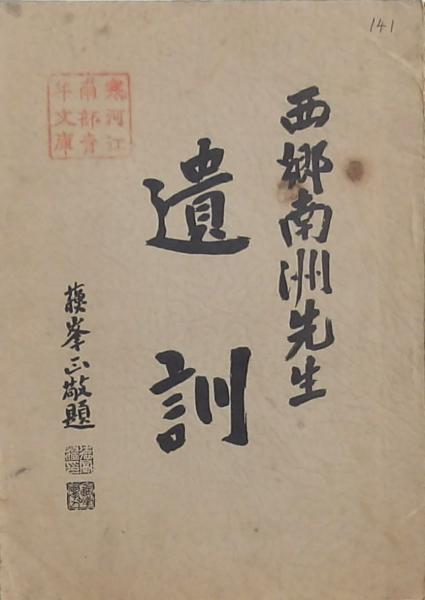 141
西郷南洲先生
遺訓
蘇峯正敬題
寒河江
南部青
年文庫